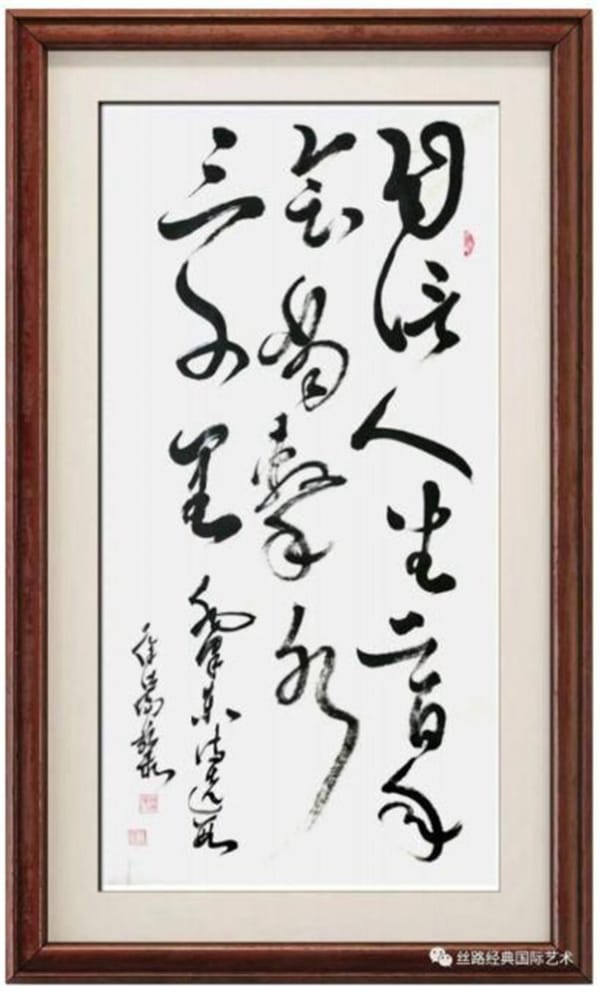 自信人生二百年
会当击水
三千里
毛泽东诗选
丝路经典国际艺术